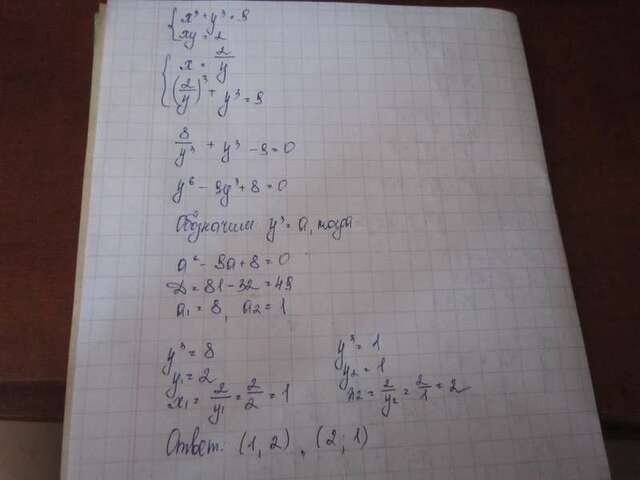 { x³ + y³ = 9
xy = 2
{ x = 2/y
(2/y)³ + y³ = 9
8/y³ + y³ - 9 = 0
y⁶ - 9y³ + 8 = 0
Обозначим y³ = a, тогда
a² - 9a + 8 = 0
D = 81 - 32 = 49
a₁ = 8, a₂ = 1
y³ = 8
y₁ = 2
x₁ = 2/y₁ = 2/2 = 1
y³ = 1
y₂ = 1
x₂ = 2/y₂ = 2/1 = 2
Ответ: (1, 2), (2; 1)